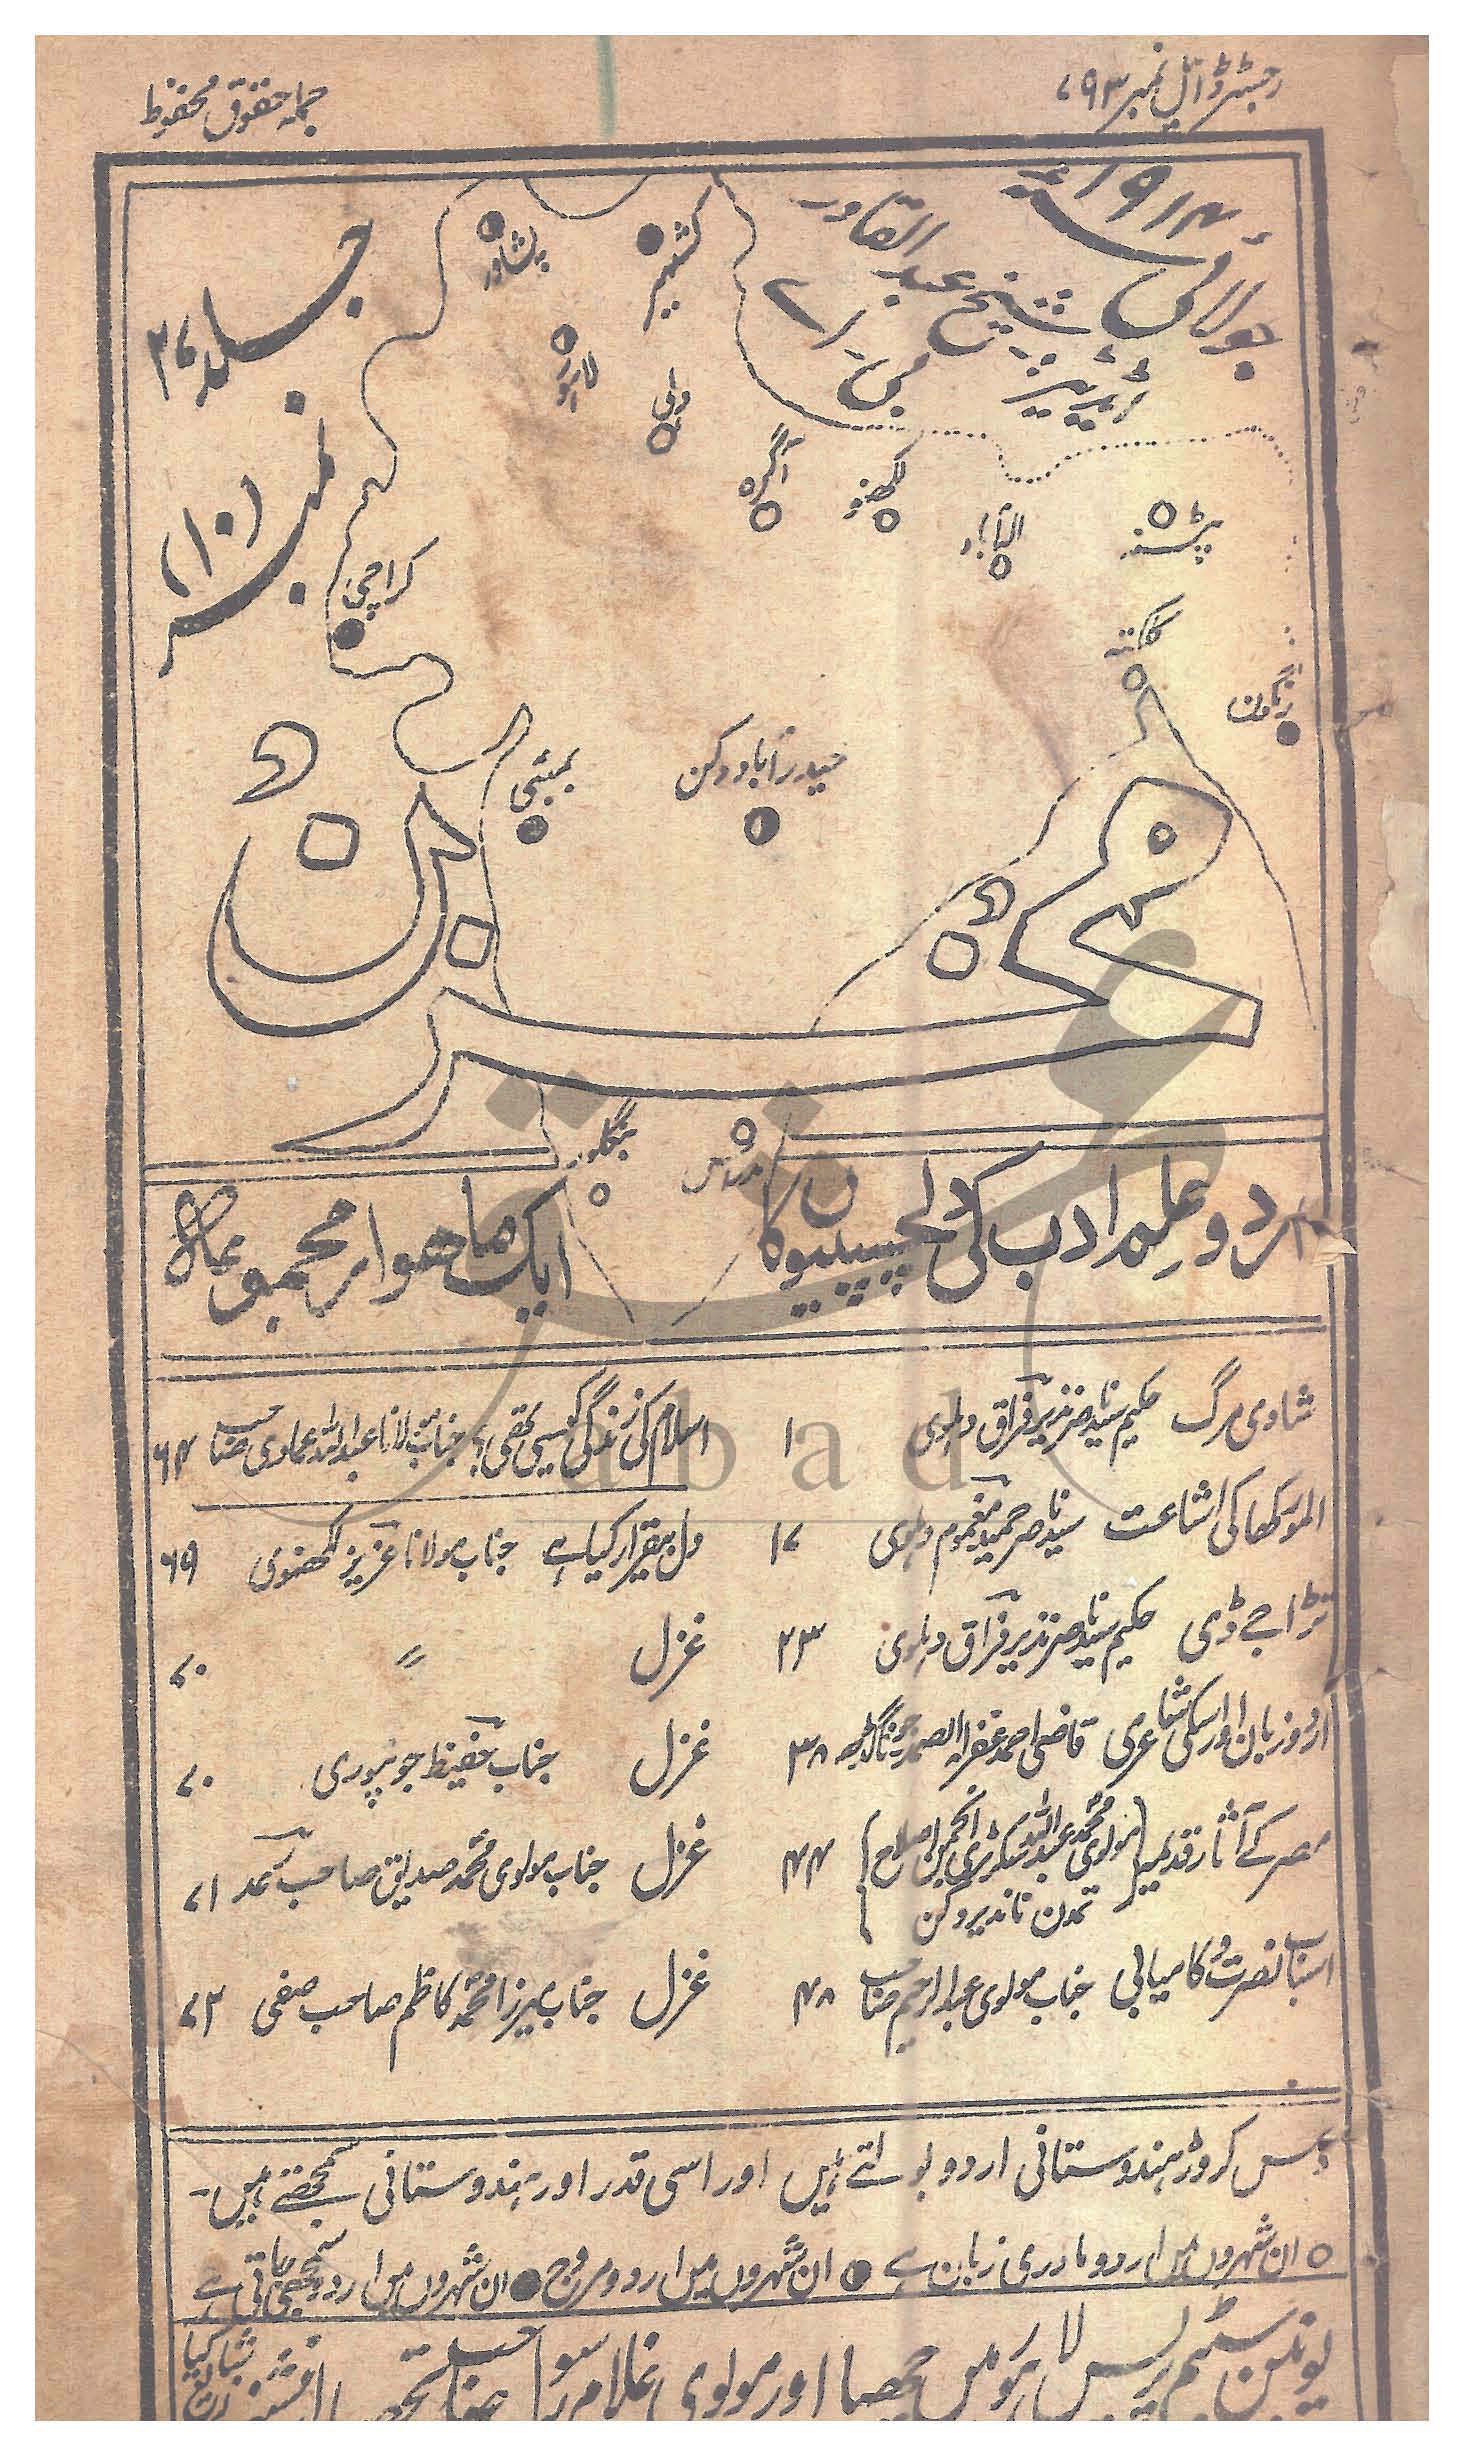 رجسٹرڈ ایل نمبر ۷۹۳
جملہ حقوق محفوظ
جولائی ۱۹۱۴ء
شیخ عبدالقادر
جلد ۲۷
نمبر (۱۰)
نمبر ۴
پشاور
کشمیر
لاہور
دہلی
آگرہ
لکھنؤ
الہ آباد
پٹنہ
کراچی
کلکتہ
رنگون
بمبئی
حیدرآباد دکن
مخزن
بنگلور
مدراس
اردو علم ادب کی دلچسپیوں کا ایک ماہوار مجموعہ
شادی مرگ حکیم سید ناصر نذیر فراق دہلوی ۱
المورکھا کی اشاعت سید ناصر حمید مغموم دہلوی ۱۷
ٹراجے ڈی حکیم سید ناصر نذیر فراق دہلوی ۲۳
اردو زبان اور اسکی شاعری قاضی احمد غفرلہ الصمد جوناگڈھ ۳۸
مصر کے آثار قدیمہ {مولوی محمد عبداللہ سکرٹری انجمن اصلاح تمدن ناندیر دکن} ۴۴
اسباب نصرت و کامیابی جناب مولوی عبدالرحیم صاحب ۴۸
اسلام کی زندگی کیسی تھی؟ جناب مولانا عبداللہ عمادی صاحب ۶۴
دل بیقرار کیا ہے جناب مولانا عزیز لکھنوی ۶۹
غزل 〃 ۷۰
غزل جناب حفیظ جونپوری ۷۰
غزل جناب مولوی محمد صدیق صاحب ۷۱
غزل جناب میرزا محمد کاظم صاحب صفی ۷۲
دس کروڑ ہندوستانی اردو بولتے ہیں اور اسی قدر اور ہندوستانی سمجھتے ہیں۔
ان شہروں میں اردو مادری زبان ہے ان شہروں میں اردو مروج ان شہروں میں اردو سمجھی جاتی ہے
یونین سٹیم پریس لاہور میں چھپا اور مولوی غلام رسول صاحب
abad